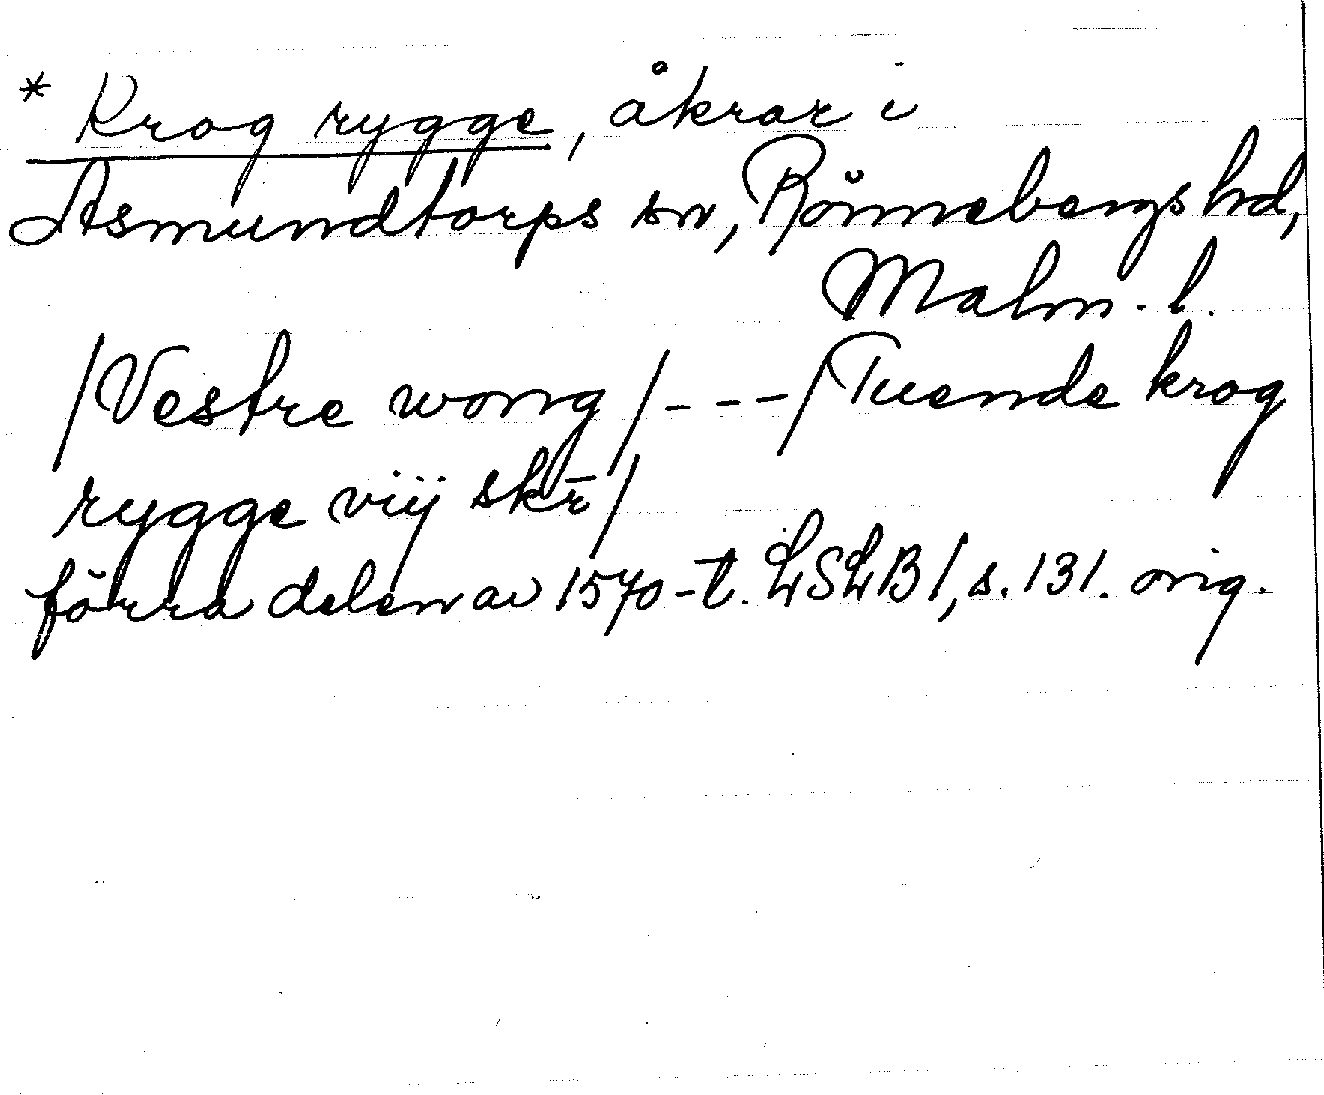 * Krog rygge, åkrar i
Asmundtorps sn, Rönnebergs hd,
Malm. l.
/Vestre wong/---/Tuende krog
rygge viij skr̄/
förra delen av 1570-t. LSLB I, s. 131. orig.